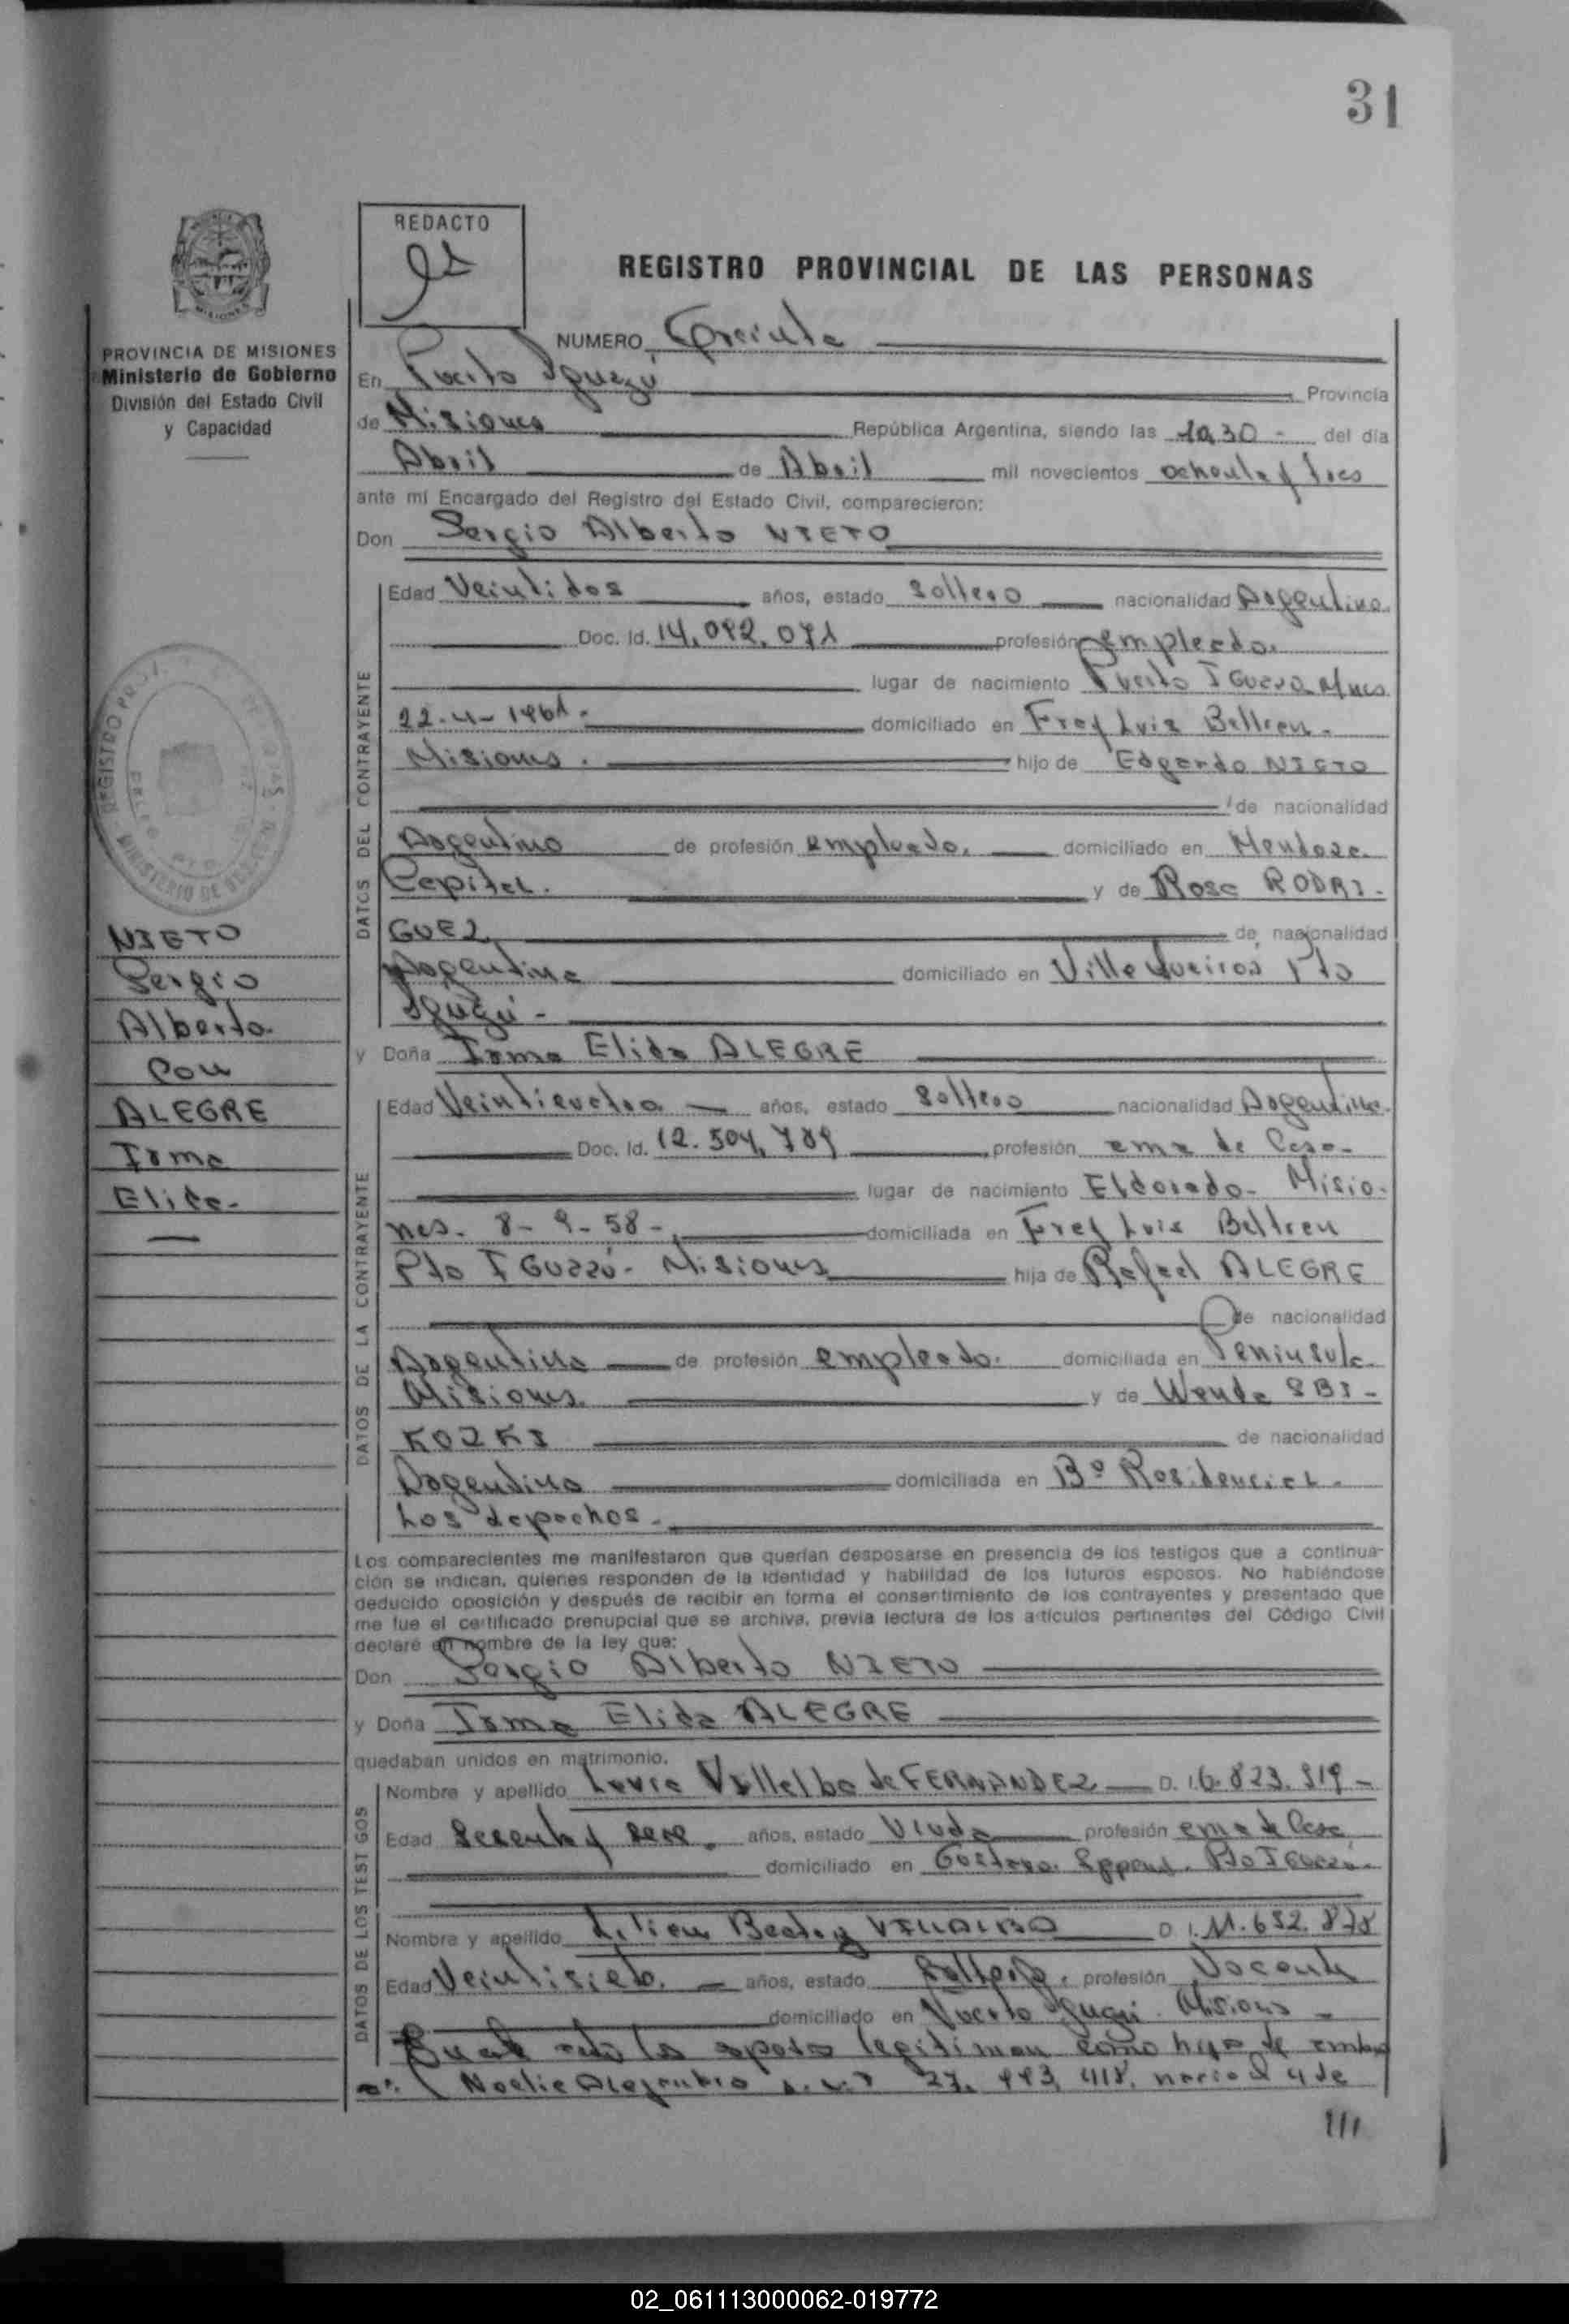 31
REDACTO
REGISTRO PROVINCIAL DE LAS PERSONAS
NUMERO
PROVINCIA DE MISIONES
Ministerio de Gobierno
División del Estado Civil
y Capacidad
En Puerto Iguazú Provincia
de Misiones República Argentina, siendo las 10,30 - del día
Abril de Abril mil novecientos ochenta y tres
ante mí Encargado del Registro del Estado Civil, comparecieron:
Don Sergio Alberto NIETO
DATOS DEL CONTRAYENTE
Edad Veintidos años, estado Soltero nacionalidad Argentina
Doc. Id. 14.092.071 profesión empleado.
lugar de nacimiento Puerto Iguazú Mnes
22-4-1961. domiciliado en Fray Luis Beltran.
Misiones. hijo de Edgardo NIETO
de nacionalidad
Argentino de profesión empleado. domiciliado en Mendoza
Capital. y de Rosa RODRI-
GUEZ de nacionalidad
Argentina domiciliado en Villa Pto
Iguazú -
NIETO
Sergio
Alberto
Con
ALEGRE
Irma
Elida-
y Doña Irma Elida ALEGRE
DATOS DE LA CONTRAYENTE
Edad Veinticuatro años, estado Soltero nacionalidad Argentina
Doc. Id. 12.504.789 profesión ama de Casa-
lugar de nacimiento Eldorado- Misio-
nes- 8-9-58- domiciliada en Fray Luis Beltran
Pto Iguazú- Misiones hija de Rafael ALEGRE
de nacionalidad
Argentina de profesión empleado. domiciliada en Peninsula
Misiones. y de Wanda SBI-
KOZKI de nacionalidad
Argentina domiciliada en Bº Residencial.
Los
Los comparecientes me manifestaron que querían desposarse en presencia de los testigos que a continua-
ción se indican, quienes responden de la identidad y habilidad de los futuros esposos. No habiéndose
deducido oposición y después de recibir en forma el consentimiento de los contrayentes y presentado que
me fue el certificado prenupcial que se archiva, previa lectura de los artículos pertinentes del Código Civil
declaré en nombre de la ley que:
Don Sergio Alberto NIETO
y Doña Irma Elida ALEGRE
quedaban unidos en matrimonio.
DATOS DE LOS TESTIGOS
Nombre y apellido Villalba de FERNANDEZ D. I. 6.823.319-
Edad Sesenta y años, estado Viuda profesión ama de Casa
domiciliado en Pto Iguazú.
Nombre y apellido Lilian Beatriz VILLALBA D. I. 11.692.878
Edad Veintisiete. años, estado Soltera. profesión Docente
domiciliado en Puerto Iguazú. Misiones -
legitiman como hija de
Noelia Alejandra 27. 993. 418. nacio el 4 de
///
02_061113000062-019772